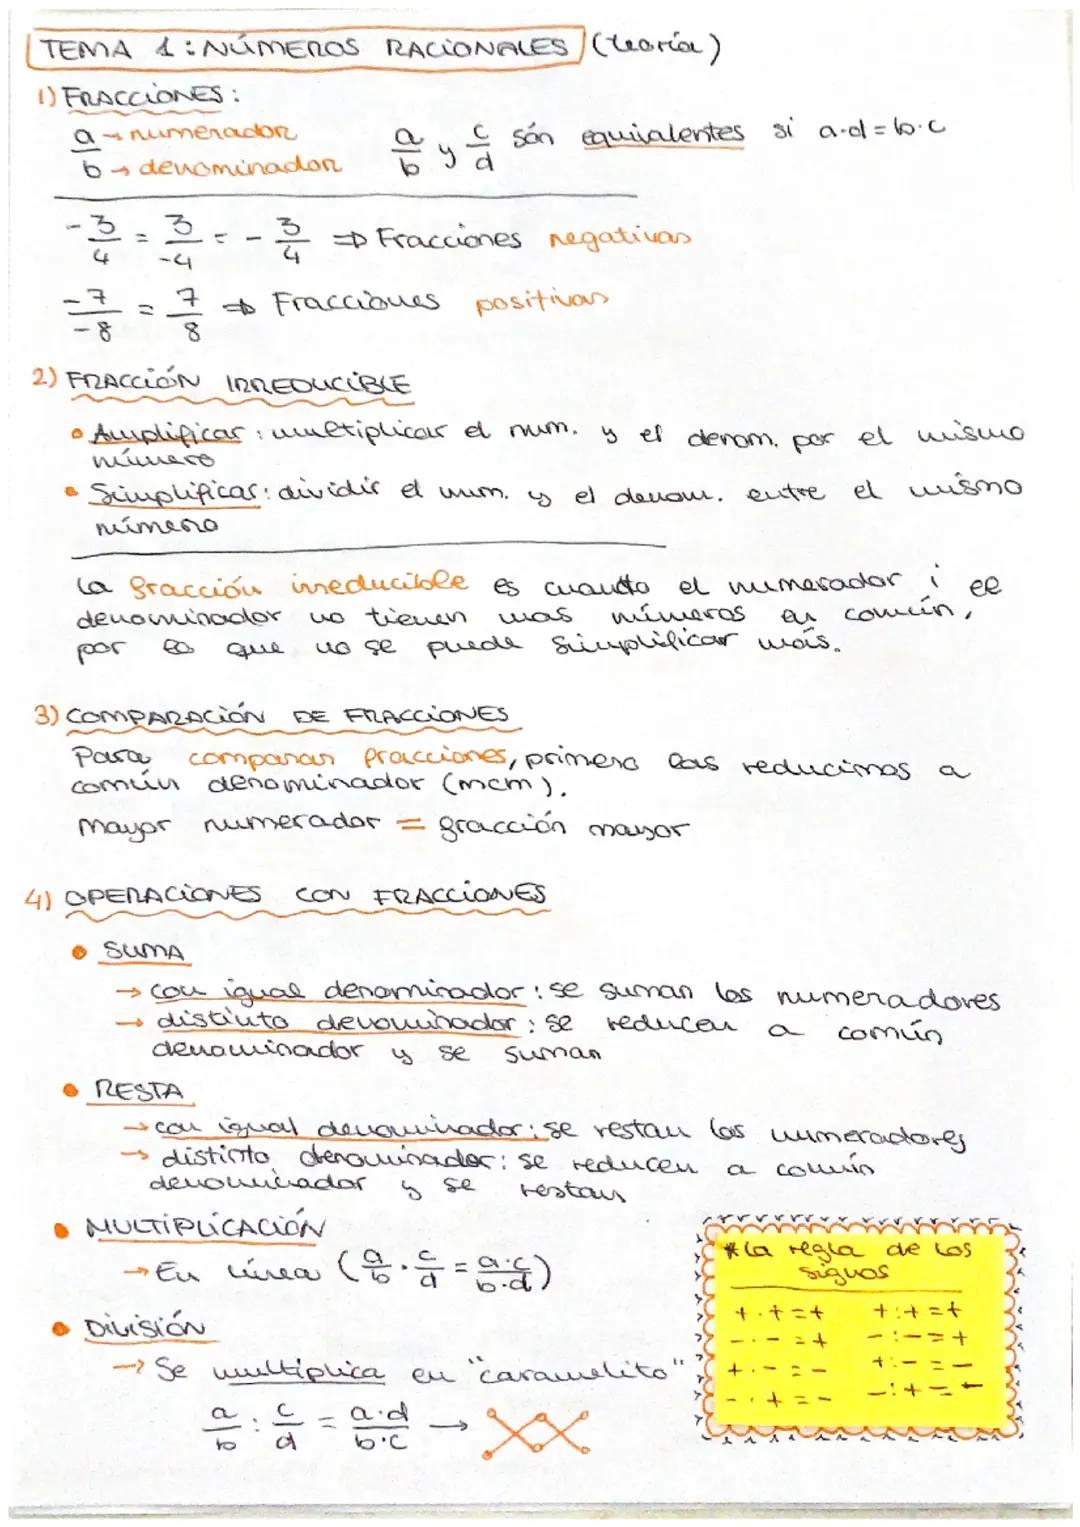 TEMA 1: NÚMEROS RACIONALES (teoría)
1) FRACCIONES:
a/b → numerador → denominador
a/b y c/d són equivalentes si a·d = b·c
-3/4 = 3/-4 = - 3/4 ⇒ Fracciones negativas
-7/-8 = 7/8 ⇒ Fracciones positivas
2) FRACCIÓN IRREDUCIBLE
• Amplificar: multiplicar el num. y el denom. por el mismo
número
• Simplificar: dividir el num. y el denom. entre el mismo
número
La fracción irreducible es cuando el numerador i el
denominador no tienen mas números en común,
por lo que no se puede simplificar más.
3) COMPARACIÓN DE FRACCIONES
Para comparar fracciones, primero las reducimos a
común denominador (mcm).
Mayor numerador = fracción mayor
4) OPERACIONES CON FRACCIONES
• SUMA
→ con igual denominador: se suman los numeradores
→ distinto denominador: se reducen a común
denominador y se suman
• RESTA
→ con igual denominador: se restan los numeradores
→ distinto denominador: se reducen a común
denominador y se restan
• MULTIPLICACIÓN
→ En línea (a/b · c/d = a·c/b·d)
• DIVISIÓN
→ Se multiplica en "caramelito"
a/b : c/d = a·d/b·c →
* La regla de los
signos
+ · + = + + : + = +
- · - = + - : - = +
+ · - = - + : - = -
- · + = - - : + = -